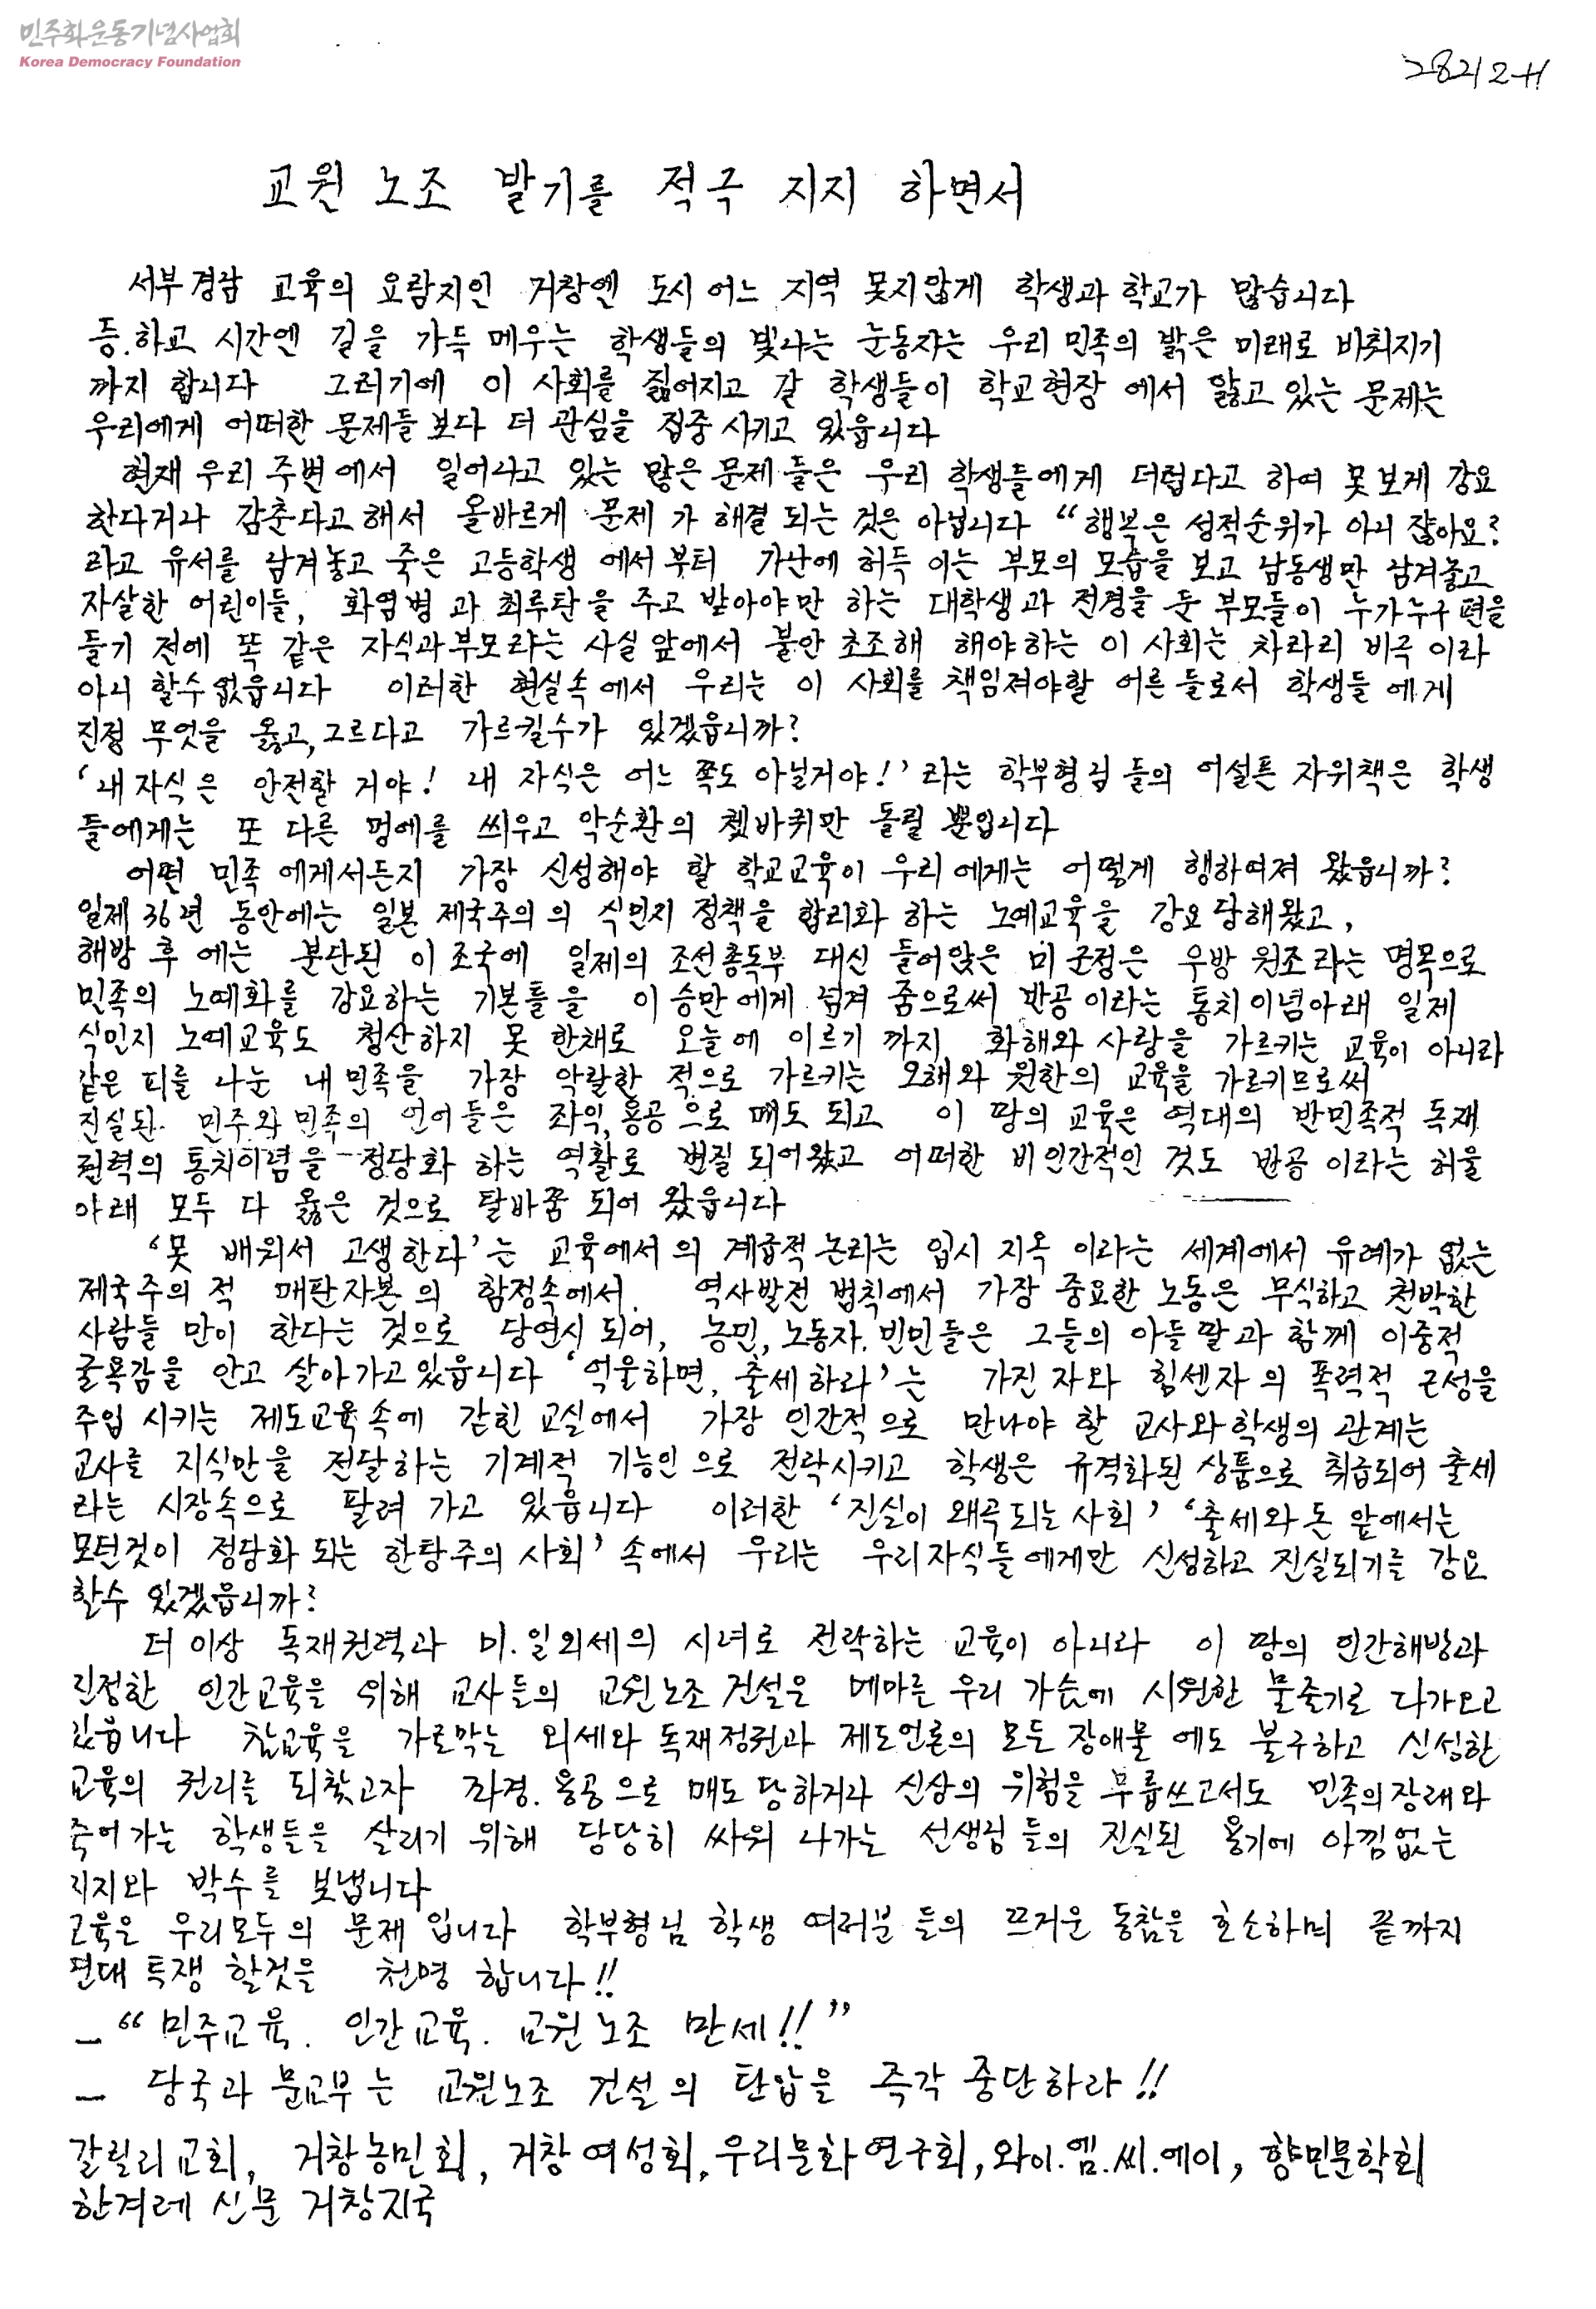 민주화운동기념사업회
Korea Democracy Foundation
교원 노조 발기를 적극 지지 하면서
서부경남 교육의 요람지인 거창엔 도시 어느 지역 못지않게 학생과 학교가 많습니다
등.하교 시간엔 길을 가득 메우는 학생들의 빛나는 눈동자는 우리 민족의 밝은 미래로 비춰지기
까지 합니다 그러기에 이 사회를 짊어지고 갈 학생들이 학교현장 에서 앓고 있는 문제는
우리에게 어떠한 문제들 보다 더 관심을 집중 시키고 있읍니다
현재 우리 주변에서 일어나고 있는 많은 문제 들은 우리 학생들에게 더럽다고 하여 못보게 강요
한다거나 감춘다고 해서 올바르게 문제 가 해결 되는 것은 아닙니다 “행복은 성적순위가 아니 잖아요?
라고 유서를 남겨놓고 죽은 고등학생 에서 부터 가난에 허득이는 부모의 모습을 보고 남동생만 남겨놓고
자살한 어린이들, 화염병 과 최루탄을 주고 받아야만 하는 대학생과 전경을 둔 부모들이 누가누구 편을
들기 전에 똑 같은 자식과부모라는 사실 앞에서 불안 초조해 해야하는 이 사회는 차라리 비극 이라
아니 할수없읍니다 이러한 현실속 에서 우리는 이 사회를 책임져야할 어른 들로서 학생들 에게
진정 무엇을 옳고,그르다고 가르킬수가 있겠읍니까?
‘내자식은 안전할 거야! 내 자식은 어느 쪽도 아닐거야!’라는 학부형님 들의 어설픈 자위책은 학생
들에게는 또 다른 멍에를 씌우고 악순환의 쳇바퀴만 돌릴 뿐입니다
어떤 민족 에게서든지 가장 신성해야 할 학교교육이 우리 에게는 어떻게 행하여져 왔읍니까?
일제 36년 동안에는 일본 제국주의 의 식민지 정책을 합리화 하는 노예교육을 강요 당해왔고,
해방 후 에는 분단된 이 조국에 일제의 조선총독부 대신 들어앉은 미 군정은 우방 원조라는 명목으로
민족의 노예화를 강요하는 기본틀을 이승만에게 넘겨 줌으로써 반공이라는 통치이념아래 일제
식민지 노예교육도 청산하지 못 한채로 오늘에 이르기 까지 화해와 사랑을 가르키는 교육이 아니라
같은 피를 나눈 내민족을 가장 악랄한 적으로 가르키는 오해와 원한의 교육을 가르키므로써
진실된 민주와 민족의 언어들은 좌익,용공으로 매도 되고 이 땅의 교육은 역대의 반민족적 독재
권력의 통치이념을 정당화 하는 역활로 변질 되어왔고 어떠한 비인간적인 것도 반공 이라는 허울
아래 모두 다 옳은 것으로 탈바꿈 되어 왔읍니다
‘못 배워서 고생한다’는 교육에서 의 계급적 논리는 입시 지옥 이라는 세계에서 유례가 없는
제국주의 적 매판자본의 함정속에서. 역사발전 법칙에서 가장 중요한 노동은 무식하고 천박한
사람들 만이 한다는 것으로 당연시 되어, 농민, 노동자. 빈민들은 그들의 아들딸과 함께 이중적
굴욕감을 안고 살아가고있읍니다 ‘억울하면, 출세하라’는 가진자와 힘센자의 폭력적 근성을
주입 시키는 제도교육속에 갇힌 교실에서 가장 인간적으로 만나야 할 교사와학생의 관계는
교사를 지식만을 전달하는 기계적 기능인 으로 전락시키고 학생은 규격화된 상품으로 취급되어 출세
라는 시장속으로 팔려 가고 있읍니다 이러한 ‘진실이 왜곡되는사회’ ‘출세와돈 앞에서는
모든것이 정당화 되는 한탕주의 사회’ 속에서 우리는 우리자식들에게만 신성하고 진실되기를 강요
할수 있겠읍니까?
더 이상 독재권력과 미.일외세의 시녀로 전락하는 교육이 아니라 이 땅의 인간해방과
진정한 인간교육을 위해 교사들의 교원노조 건설은 메마른 우리 가슴에 시원한 물줄기로 다가오고
있읍니다 참교육을 가로막는 외세와 독재정권과 제도언론의 모든 장애물 에도 불구하고 신성한
교육의 권리를 되찾고자 좌경.용공으로 매도 당하거나 신상의 위험을 무릅쓰고서도 민족의장래와
죽어가는 학생들을 살리기 위해 당당히 싸워 나가는 선생님 들의 진실된 용기에 아낌없는
지지와 박수를 보냅니다
교육은 우리모두의 문제 입니다 학부형님 학생 여러분 들의 뜨거운 동참을 호소하며 끝까지
연대 투쟁 할것을 천명 합니다!!
– “민주교육. 인간교육. 교원노조 만세!!”
– 당국과 문교부는 교원노조 건설의 탄압을 즉각 중단하라!!
갈릴리교회, 거창농민회, 거창여성회,우리문화연구회,와이.엠.씨.에이, 향민문학회
한겨레 신문 거창지국